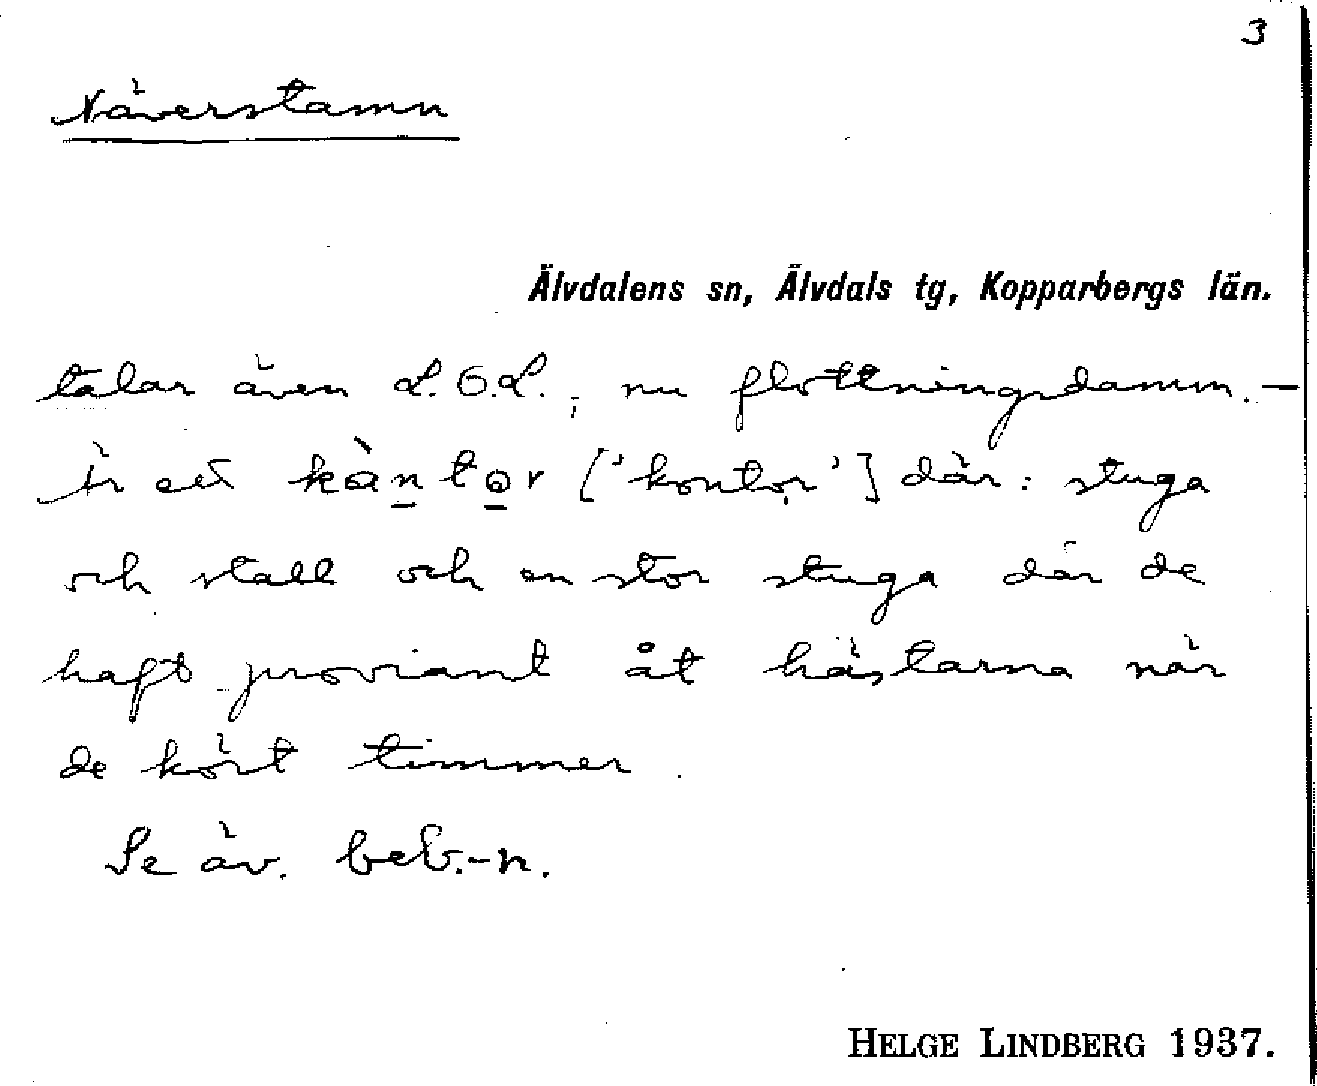 3
Näverstamn
Älvdalens sn, Älvdals tg, Kopparbergs län.
talar även L.O.L., nu flottningsdamm. –
är ett kàntor ['kontor'] där: stuga
och stall och en stor stuga där de
haft proviant åt hästarna när
de kört timmer.
Se äv. beb.-n.
HELGE LINDBERG 1937.